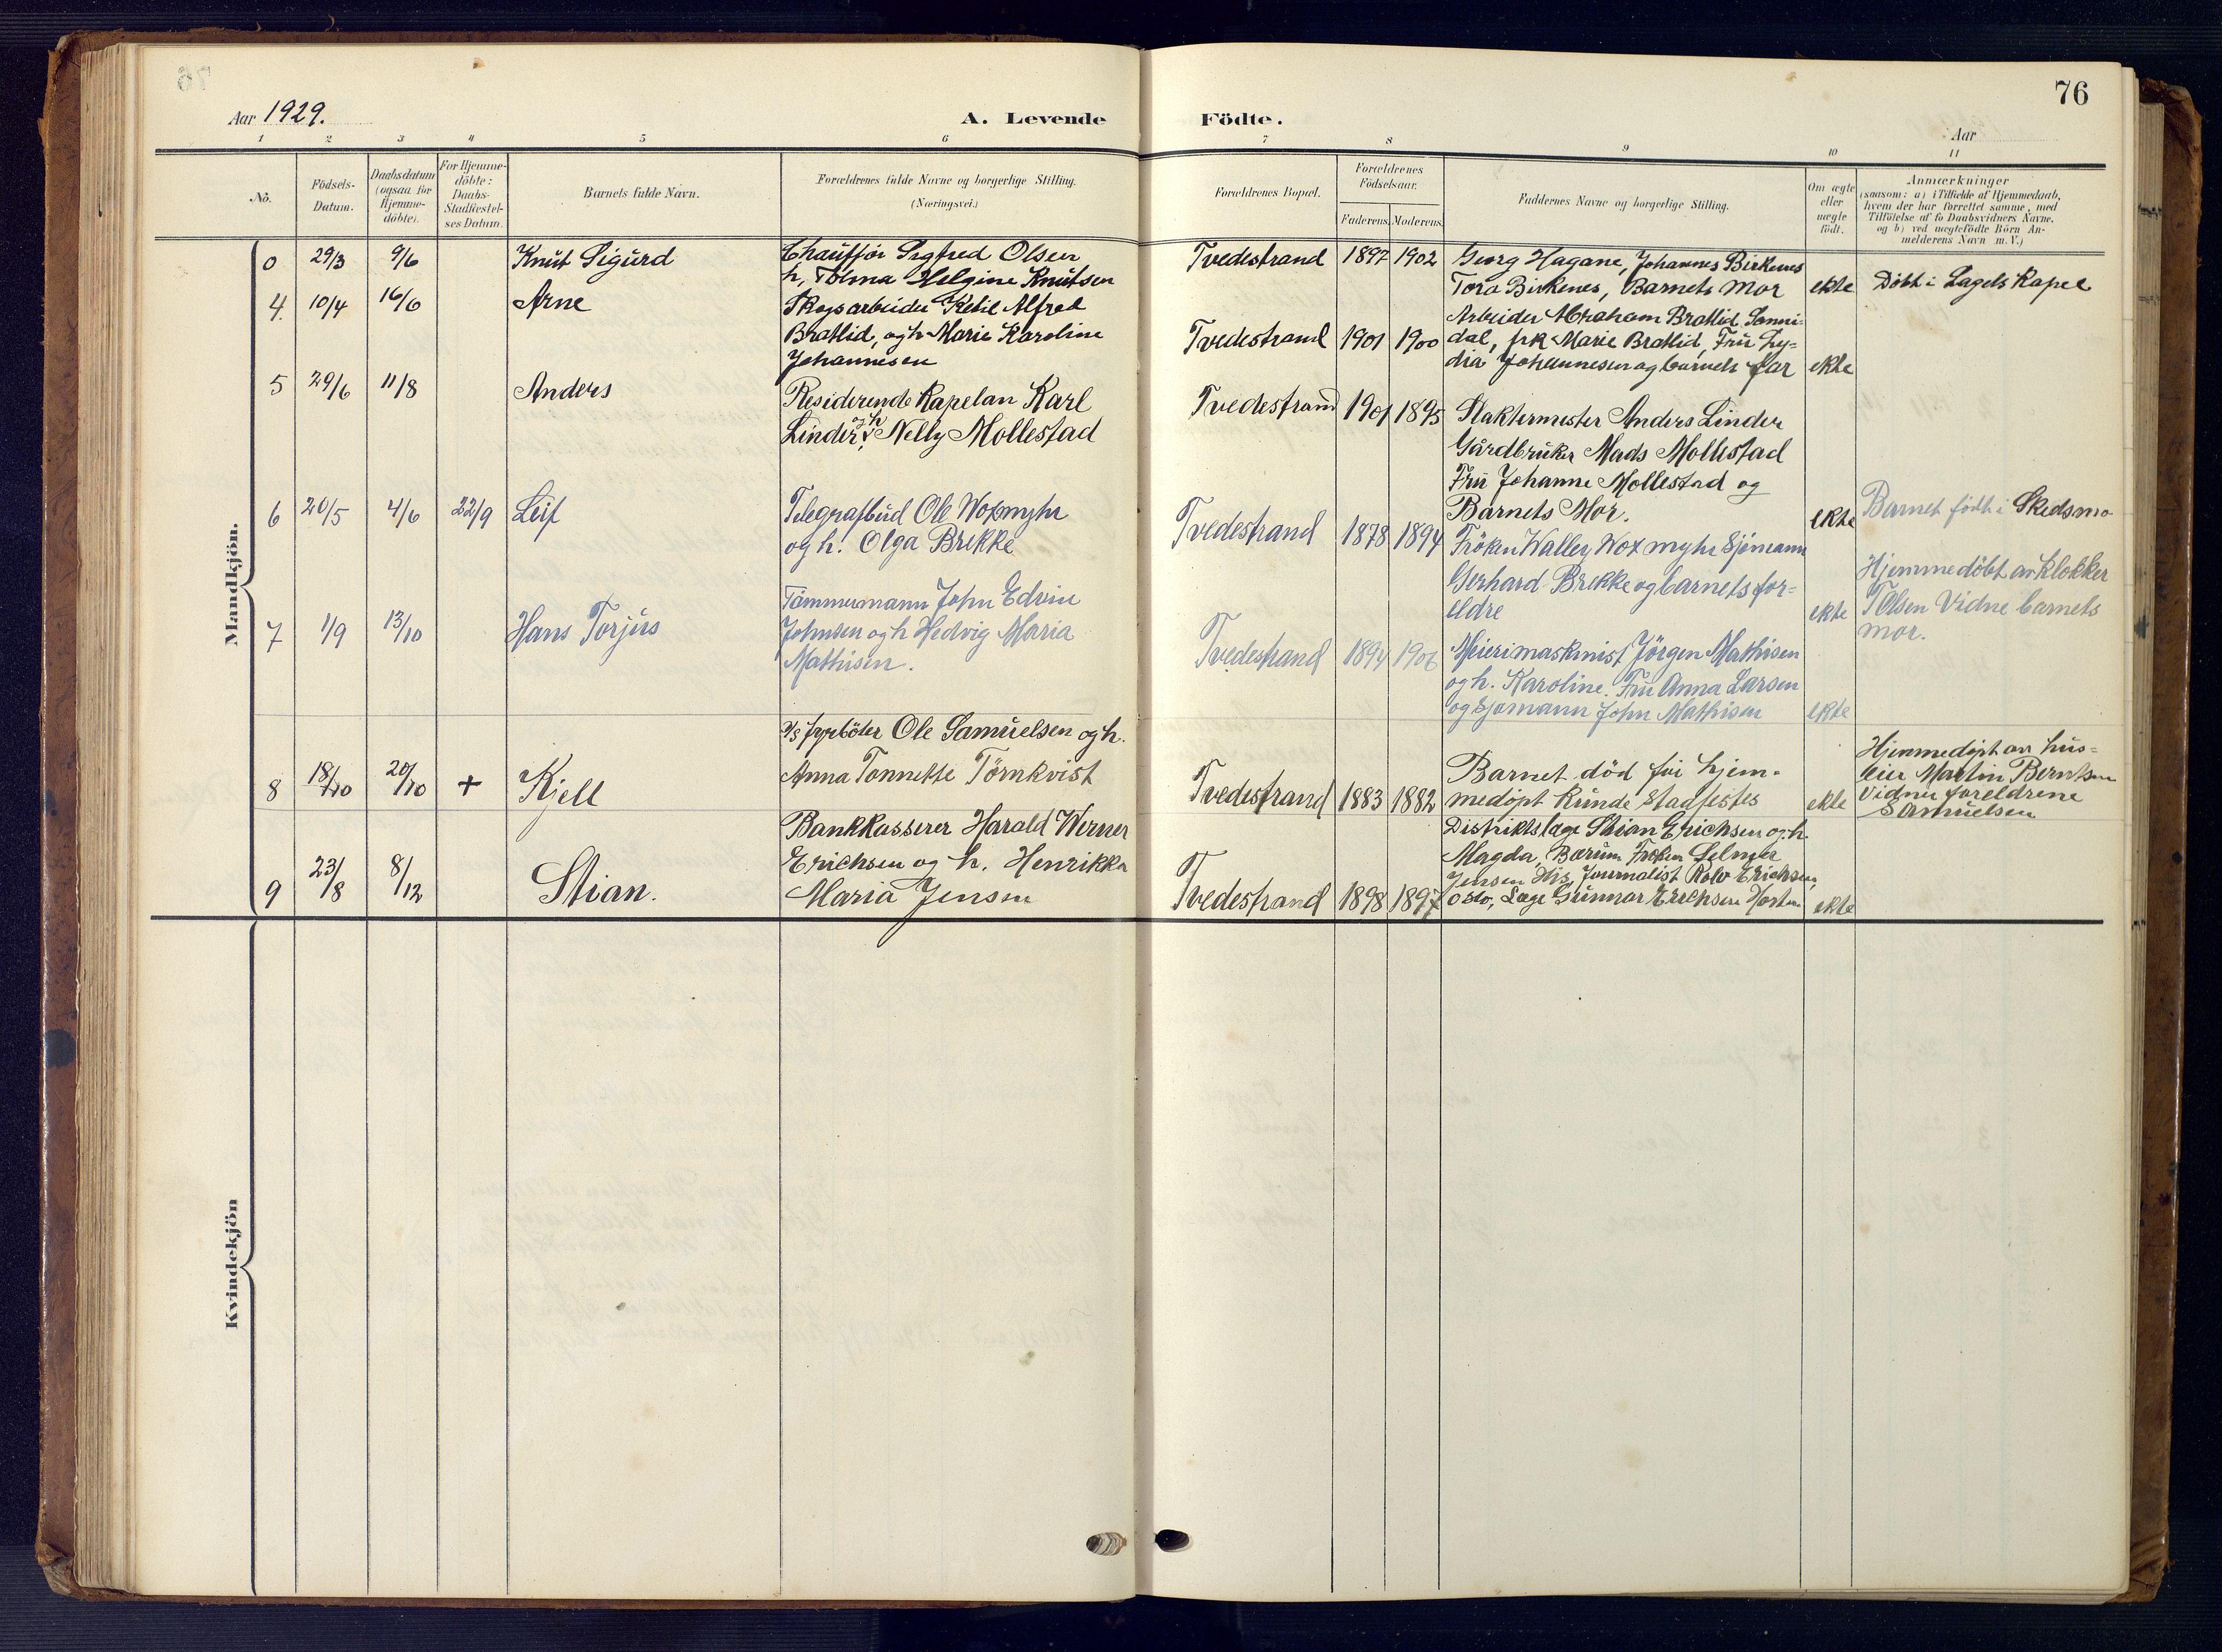 76
Aar 1929.
A. Levende Födte.
Aar
1 2 3 4 5 6 7 8 9 10 11
No.
Födsels-
Datum.
Daabsdatum
(ogsaa for
Hjemme-
döbte).
For Hjemme-
döbte:
Daabs-
Stadfæstel-
ses Datum.
Barnets fulde Navn.
Forældrenes fulde Navne og borgerlige Stilling.
(Næringsvei.)
Forældrenes Bopæl.
Forældrenes
Födselsaar.
Faderens. Moderens.
Faddernes Navne og borgerlige Stilling.
Om ægte
eller
uægte
födt.
Anmærkninger
(saasom: a) i Tilfælde af Hjemmedaab,
hvem der har forrettet samme, med
Tilföielse af to Daabsvidners Navne.
og b) ved uægtefödte Börn An-
melderens Navn m. V.)
Mandkjön.
0 29/3 9/6 Knut Sigurd
Chaufför Sigfred Olsen
h, Tolma Helgine Knutsen
Tvedestrand 1897 1902
Georg Hagane, Johannes Birkenes
Tora Birkenes, Barnets Mor
ekte
Döbt i Lagets Kapel
4. 10/4 16/6 Arne
Skogsarbeider Ketil Alfred
Bratlid, og h Marie Karoline
Johannesen
Tvedestrand 1901 1900
Arbeider Abraham Bratlid Sønni=
dal, frk Marie Bratlid, Fru Ly=
dia Johannesen og barnets far
ekte
5 29/6 11/8 Anders
Residerende Kapelan Karl
Linder og h. Nelly Mollestad
Tvedestrand 1901 1895
Slaktermester Anders Linder
Gårdbruker Mads Mollestad
Fru Johanne Mollestad og
Barnets Mor.
ekte
6 20/5 4/6 22/9 Leif
Telegrafbud Ole Woxmyhr
og h. Olga Brekke
Tvedestrand 1878 1894
Fröken Walley Woxmyhr Sjömann
Gerhard Brekke og barnets for=
eldre
ekte
Barnet födt i Skedsmo
Hjemmedöbt av klokker
T Olsen Vidne barnets
mor.
7 1/9 13/10 Hans Torjus
Tömmermann John Edvin
Johnsen og h Hedvig Maria
Mathisen.
Tvedestrand 1894 1906
Meierimaskinist Jörgen Mathisen
og h. Karoline. Fru Anna Larsen
og Sjömann John Mathisen
ekte
8 18/10 20/10 + Kjell
D/S fyrböter Ole Samuelsen og h.
Anna Tonnette Törnkvist
Tvedestrand 1883 1882
Barnet död för hjem-
medöpt kunde stadfestes
ekte
Hjemmedöpt av hus=
eier Martin Berntsen
Vidner foreldrene
Samuelsen
9 23/8 8/12 Stian.
Bankkasserer Harald Werner
Erichsen og h. Henrikka
Maria Jensen
Tvedestrand 1898 1897
Distriktslæge Stian Erichsen og h.
Magda, Bærum Fröken Selmer
Jensen His, Journalist Rolv Erichsen,
Oslo, Læge Gunnar Erichsen Horten
ekte
Kvindekjön